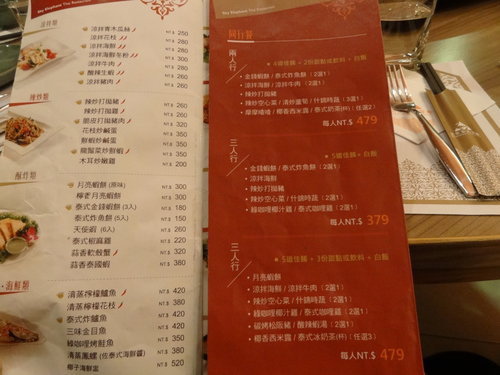 涼拌類
涼拌青木瓜絲 NT.$ 250
涼拌花枝 NT.$ 280
涼拌海鮮 NT.$ 280
涼拌海鮮冬粉 NT.$ 300
涼拌牛肉 NT.$ 260
酸辣生蝦 NT.$ 260
涼拌豬肉 NT.$ 260
辣炒類
辣炒打拋豬 NT.$ 260
辣炒打拋雞 NT.$ 260
脆皮打拋豬肉 NT.$ 320
花枝炒鹹蛋 NT.$
鮮蝦炒鹹蛋 NT.$
NT.$
木耳炒嫩雞 NT.$ 200
酥炸類
月亮蝦餅 (原味) NT.$ 300
檸老月亮蝦餅 NT.$ 300
泰式金錢蝦餅 (3入) NT.$ 180
泰式炸魚餅 (5入) NT.$ 150
天使蝦 (6入) NT.$ 260
泰式椒麻雞 NT.$ 220
蒜香軟殼蟹 NT.$ 320
蒜香泰國蝦 NT.$ 380
海鮮類
清蒸檸檬鱸魚 NT.$ 420
清蒸檸檬花枝 NT.$ 380
泰式炸鱸魚 NT.$ 420
三味金目魚 NT.$ 420
綠咖哩烤鮭魚 NT.$ 350
清蒸鳳螺 (佐泰式海鮮醬) NT.$ 380
椰子海鮮盅 NT.$ 520
Sky Elephant Thai Restaurant
同行餐
兩人行
4道佳餚 + 2份甜點或飲料 + 白飯
金錢蝦餅 / 泰式炸魚餅 (2選1)
涼拌海鮮 / 涼拌牛肉 (2選1)
辣炒打拋豬
辣炒空心菜 / 清炒蘆筍 / 什錦時蔬 (2選1)
摩摩喳喳 / 椰香西米露 / 泰式奶茶(杯) (任選2)
每人NT.$ 479
三人行
5道佳餚 + 白飯
金錢蝦餅 / 泰式炸魚餅 (2選1)
涼拌海鮮
辣炒打拋豬
辣炒空心菜 / 什錦時蔬 (2選1)
綠咖哩椰汁雞 / 泰式咖哩雞 (2選1)
每人NT.$ 379
三人行
5道佳餚 + 3份甜點或飲料 + 白飯
月亮蝦餅
涼拌海鮮 / 涼拌牛肉 (2選1)
辣炒空心菜 / 什錦時蔬 (2選1)
綠咖哩椰汁雞 / 泰式咖哩雞 (2選1)
碳烤松阪豬 / 酸辣蝦湯 (2選1)
椰香西米露 / 泰式冰奶茶(杯) (任選3)
每人NT.$ 479